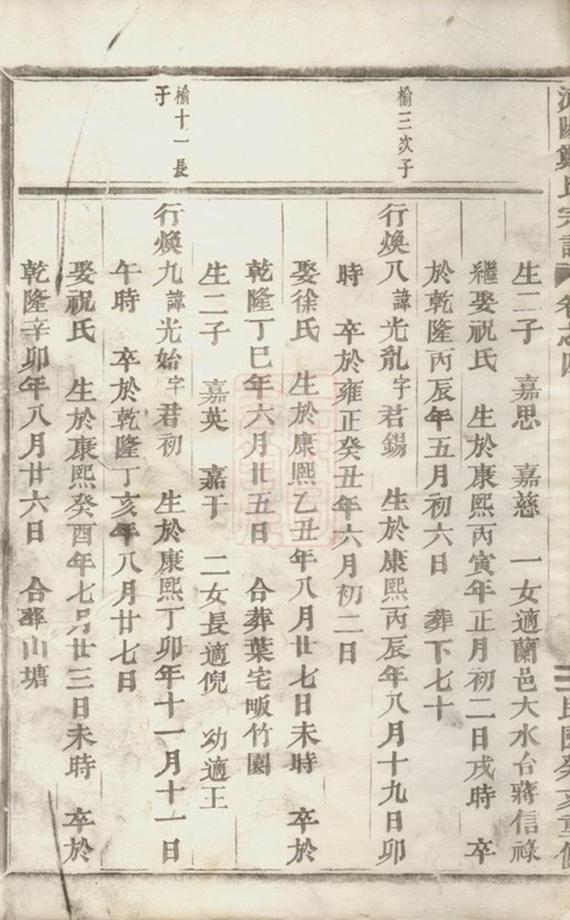 鄭氏宗譜 卷之四 民國癸亥重修
生二子 嘉思 嘉慈 一女適蘭邑大水台蔣信祿
繼娶祝氏 生於康熙丙寅年正月初二日戌時 卒
於乾隆丙辰年五月初六日 葬下七十
榆三次子
行煥八諱光亂字君錫 生於康熙丙辰年八月十九日卯
時 卒於雍正癸丑年六月初二日
娶徐氏 生於康熙乙丑年八月廿七日未時 卒於
乾隆丁巳年六月廿五日 合葬葉宅畈竹園
生二子 嘉英 嘉于 二女長適倪 幼適王
榆十一長
子
行煥九諱光始字君初 生於康熙丁卯年十一月十一日
午時 卒於乾隆丁亥年八月廿七日
娶祝氏 生於康熙癸酉年七月廿三日未時 卒於
乾隆辛卯年八月廿六日 合葬山塘